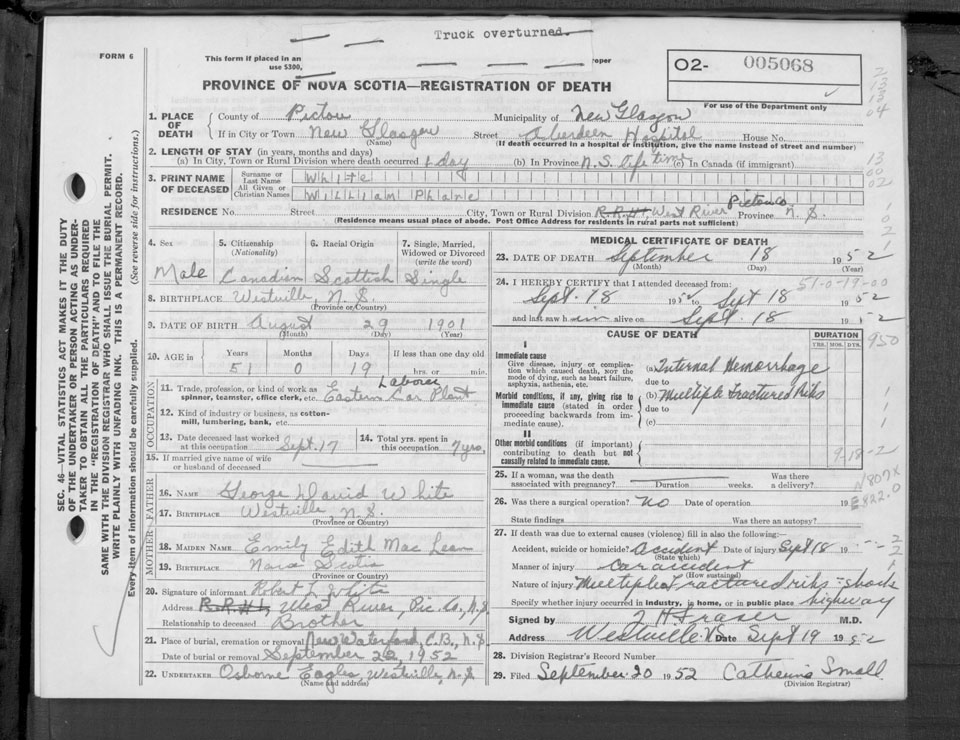 Truck overturned.
FORM 6
This form if placed in an
use $300,
roper
O2- 005068
PROVINCE OF NOVA SCOTIA—REGISTRATION OF DEATH
For use of the Department only
1. PLACE OF DEATH
County of Pictou Municipality of New Glasgow
If in City or Town New Glasgow Street Aberdeen Hospital House No.
(Name) (If death occurred in a hospital or institution, give the name instead of street and number)
2. LENGTH OF STAY (in years, months and days)
(a) In City, Town or Rural Division where death occurred 1 day (b) In Province N.S. life time (c) In Canada (if immigrant)
3. PRINT NAME OF DECEASED
Surname or Last Name White
All Given or Christian Names William Phane
RESIDENCE No. Street City, Town or Rural Division R.R.#1, West River Pictou Co Province N.S.
(Residence means usual place of abode. Post Office Address for residents in rural parts not sufficient)
4. Sex 5. Citizenship 6. Racial Origin 7. Single, Married,
(Nationality) Widowed or Divorced
(write the word)
Male Canadian Scottish Single
8. BIRTHPLACE Westville, N.S.
(Province or Country)
9. DATE OF BIRTH August 29 1901
(Month) (Day) (Year)
10. AGE in Years Months Days If less than one day old
51 0 19 hrs. or min.
OCCUPATION
11. Trade, profession, or kind of work as Laborer
spinner, teamster, office clerk, etc. Eastern Car Plant
12. Kind of industry or business, as cotton-
mill, lumbering, bank, etc.
13. Date deceased last worked at this occupation Sept. 17 14. Total yrs. spent in this occupation 7 yrs.
15. If married give name of wife
or husband of deceased
FATHER
16. NAME George David White
17. BIRTHPLACE Westville, N.S.
(Province or Country)
MOTHER
18. MAIDEN NAME Emily Edith MacLean
19. BIRTHPLACE Nova Scotia
(Province or Country)
20. Signature of informant Robert L White
Address R.R.#1, West River, Pic. Co, N.S
Relationship to deceased Brother
21. Place of burial, cremation or removal New Waterford, C.B., N.S.
Date of burial or removal September 22, 1952
22. UNDERTAKER Osborne Eagles, Westville, N.S
(Name and address)
MEDICAL CERTIFICATE OF DEATH
23. DATE OF DEATH September 18 1952
(Month) (Day) (Year)
24. I HEREBY CERTIFY that I attended deceased from: 51-0-19-00
Sept. 18 1952 to Sept 18 1952
and last saw him alive on Sept. 18 1952
CAUSE OF DEATH DURATION
YRS. MOS. DYS.
950
I
Immediate cause
Give disease, injury or complication which caused death, not the mode of dying, such as heart failure, asphyxia, asthenia, etc.
(a) Internal Hemorrhage
due to
Morbid conditions, if any, giving rise to immediate cause (stated in order proceeding backwards from immediate cause).
(b) Multiple Fractured Ribs
due to
(c)
II
Other morbid conditions (if important) contributing to death but not causally related to immediate cause.
9-18-2
25. If a woman, was the death associated with pregnancy? Duration weeks. Was there a delivery?
N807X
E822.0
26. Was there a surgical operation? no Date of operation 19
State findings Was there an autopsy?
27. If death was due to external causes (violence) fill in also the following:—
Accident, suicide or homicide? accident Date of injury Sept 18 19
(State which)
Manner of injury Car accident
(How sustained)
Nature of injury Multiple Fractured ribs - shock
Specify whether injury occurred in industry, in home, or in public place highway
Signed by J H Fraser M.D.
Address Westville NS Date Sept 19 1952
28. Division Registrar's Record Number
29. Filed September 20 1952 Catherine Small
(Division Registrar)
SEC. 46—VITAL STATISTICS ACT MAKES IT THE DUTY
OF THE UNDERTAKER OR PERSON ACTING AS UNDER-
TAKER TO OBTAIN ALL THE PARTICULARS REQUIRED
IN THE "REGISTRATION OF DEATH" AND TO FILE THE
SAME WITH THE DIVISION REGISTRAR WHO SHALL ISSUE THE BURIAL PERMIT.
WRITE PLAINLY WITH UNFADING INK. THIS IS A PERMANENT RECORD.
Every item of information should be carefully supplied. (See reverse side for instructions.)